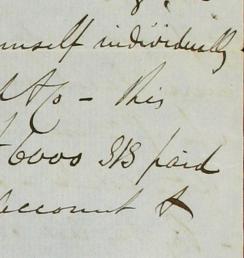 himself individually
&c - this
6000 $18 paid
account &